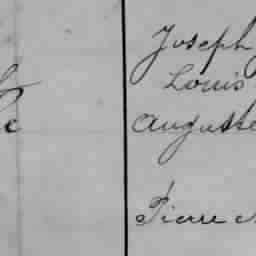 Joseph
Louis
Auguste
Pierre